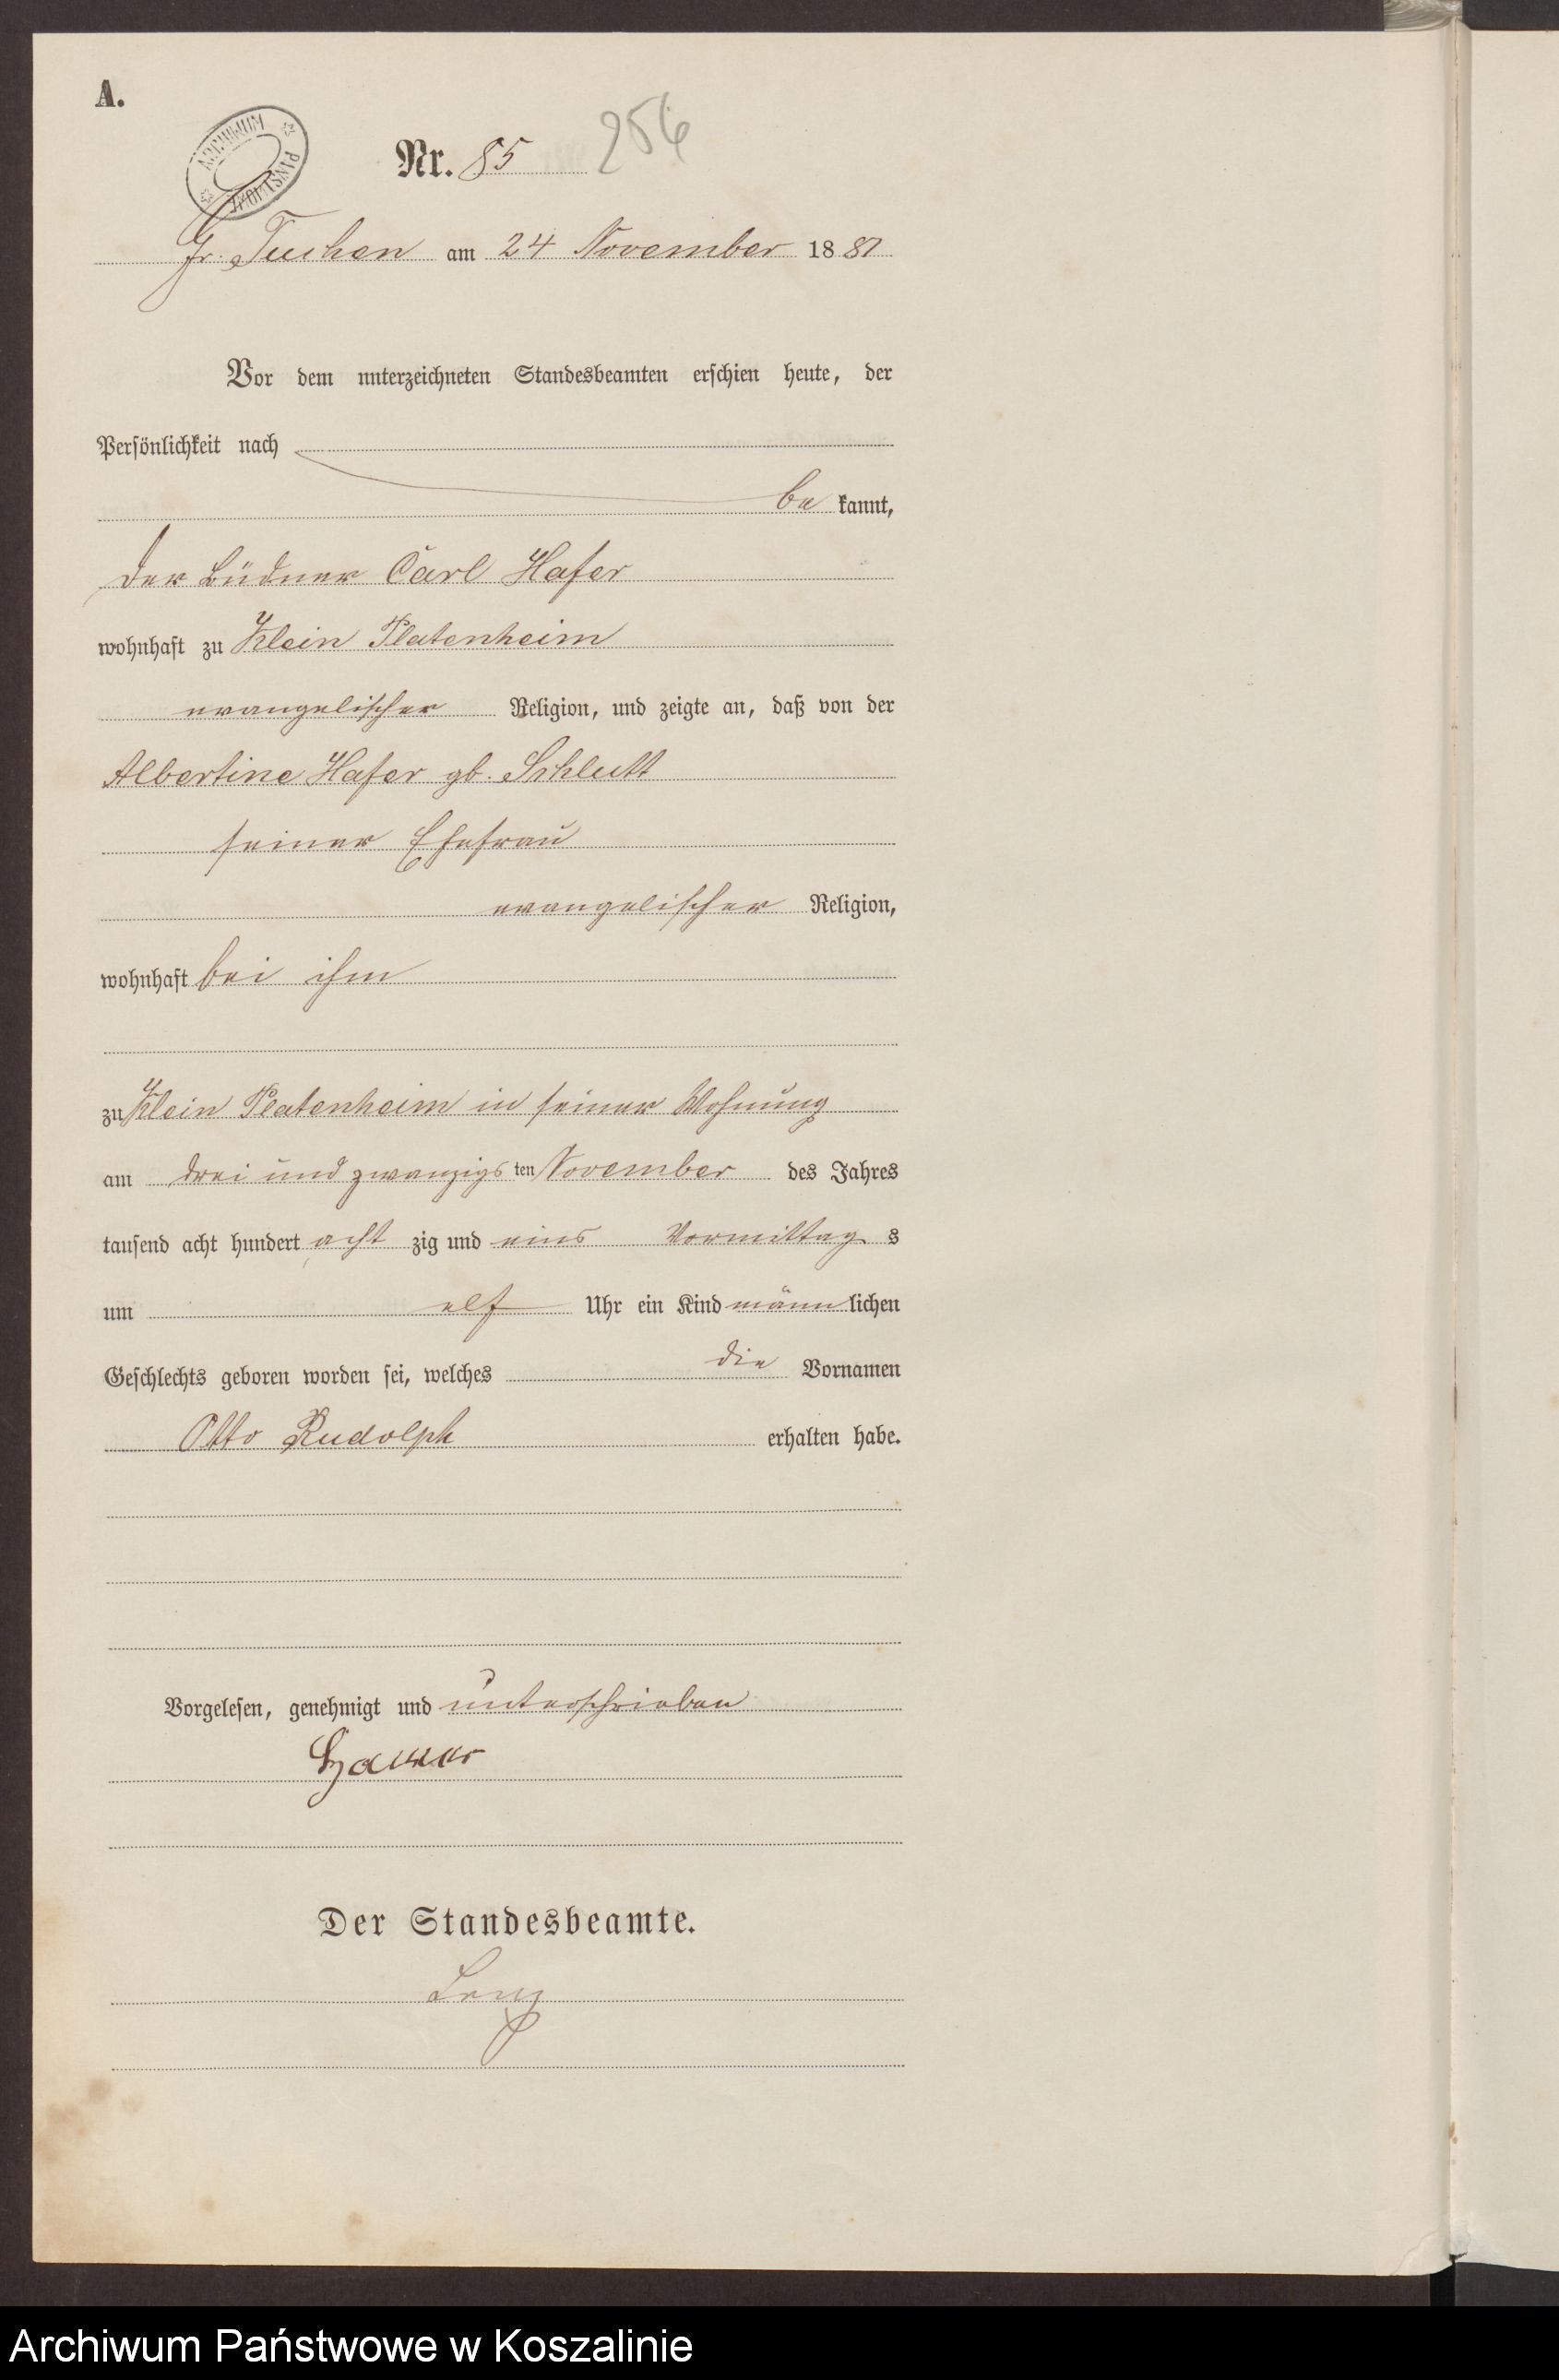 A.
ARCHIWUM PAŃSTWOWE
Nr. 85 256
Gr. Tuchen am 24 November 1881
Vor dem unterzeichneten Standesbeamten erschien heute, der
Persönlichkeit nach
be kannt,
der Büdner Carl Hafer
wohnhaft zu Klein Platenheim
evangelischer Religion, und zeigte an, daß von der
Albertine Hafer gb. Schlutt
seiner Ehefrau
evangelischer Religion,
wohnhaft bei ihm
zu Klein Platenheim in seiner Wohnung
am drei und zwanzigs ten November des Jahres
tausend acht hundert acht zig und eins Vormittag s
um elf Uhr ein Kind männ lichen
Geschlechts geboren worden sei, welches die Vornamen
Otto Rudolph erhalten habe.
Vorgelesen, genehmigt und unterschrieben
Der Standesbeamte.
Archiwum Państwowe w Koszalinie